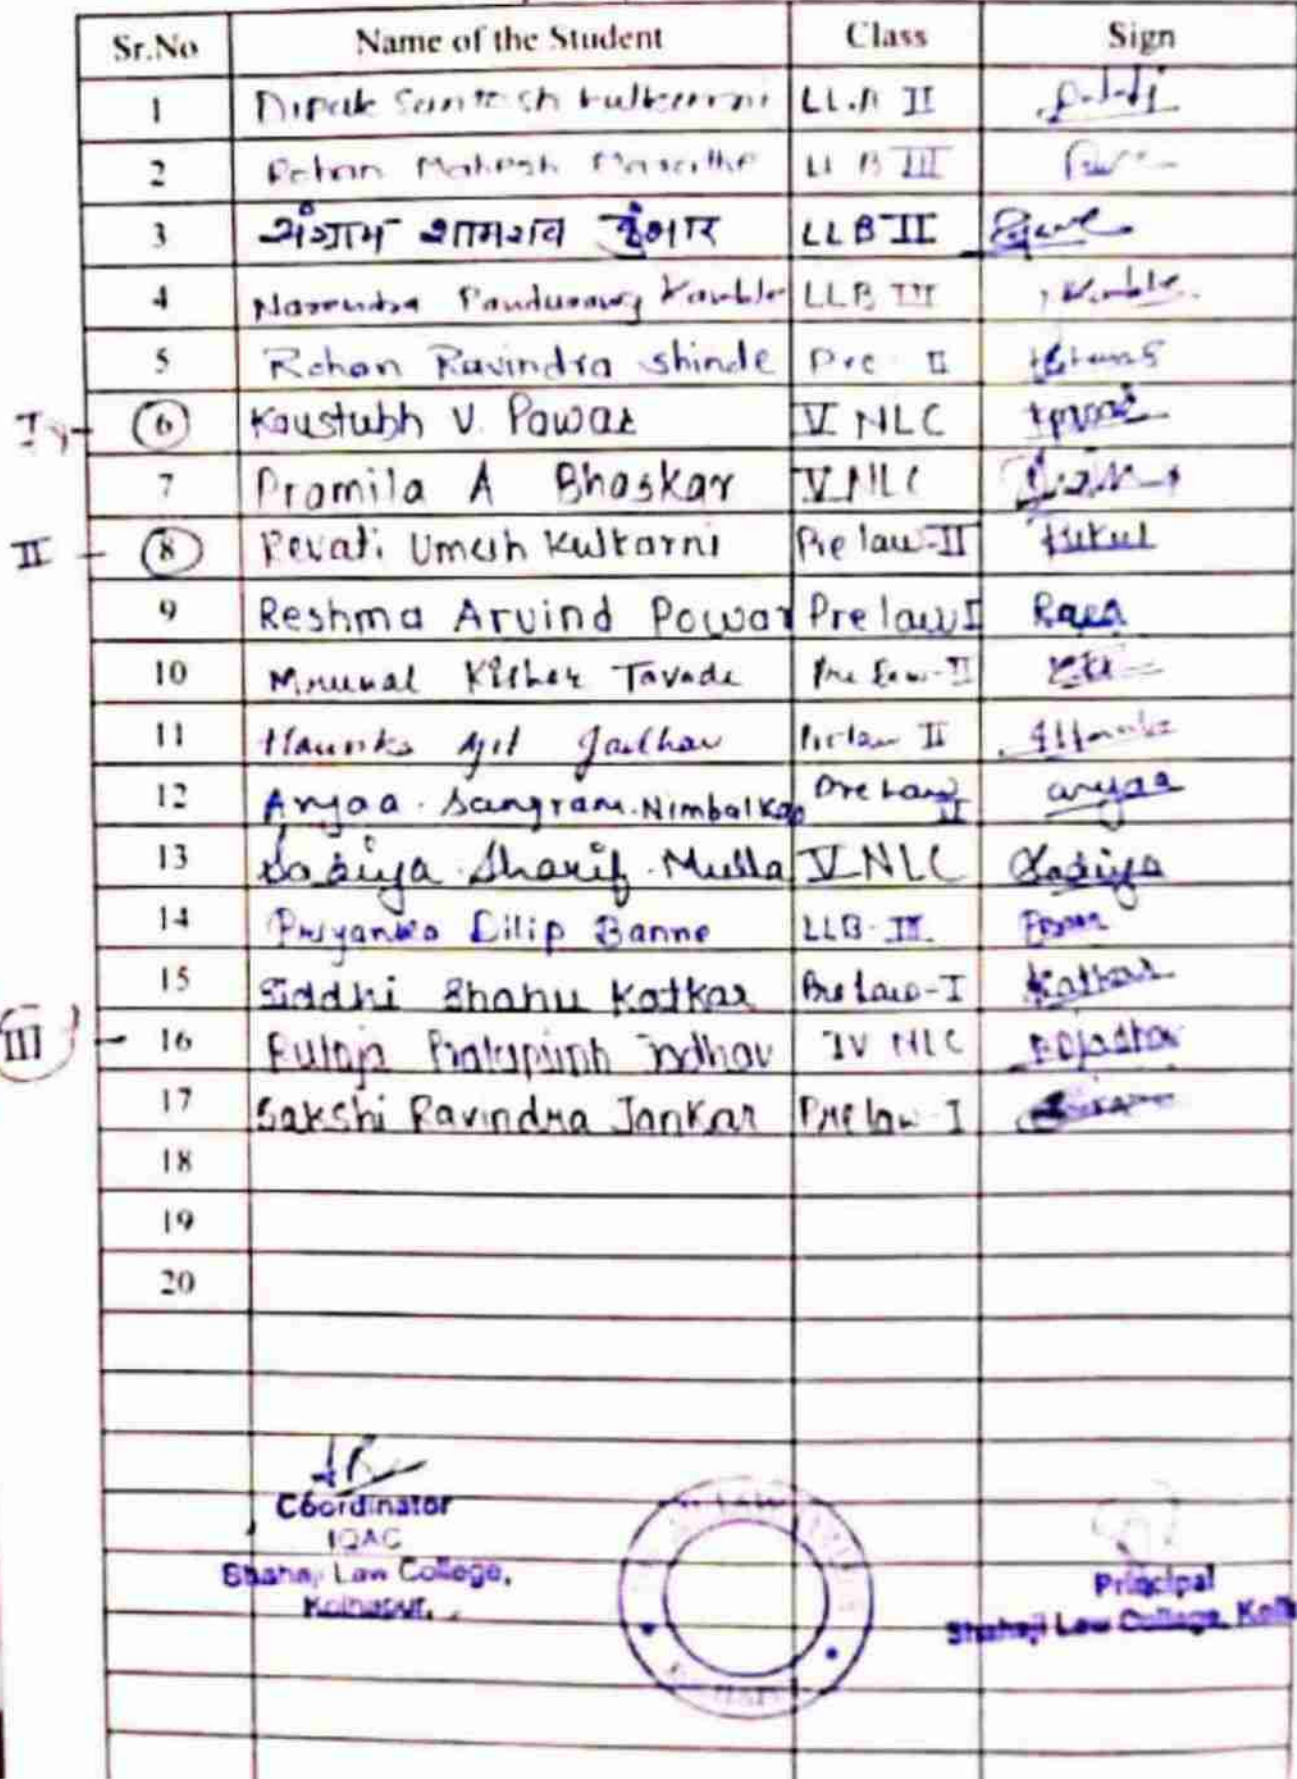 Sr.No Name of the Student Class Sign
1 Dipak Santosh Kulkarni LL.B II
2 Rohan Mahesh Marathe LL B III
3 संग्राम शामराव कुंभार LLB II
4 Narendra Pandurang Kamble LLB III Kamble.
5 Rohan Ravindra Shinde Pre - II
I 6 Kaustubh V. Pawar V NLC
7 Pramila A Bhaskar V NLC
II - 8 Revati Umesh Kulkarni Pre law-II
9 Reshma Arvind Powar Pre law I
10 Mrunal Kishor Tavade Pre Law-II
11 Jadhav Prelaw II
12 Aryaa. Sangram. Nimbalkar Pre Law II aryaa
13 Sadiya Sharif. Mulla V NLC Sadiya
14 Priyanka Dilip Banne LLB-III
15 Siddhi Bhanu Katkar Pre Law-I Katkar
III - 16 Jadhav IV NLC
17 Sakshi Ravindra Jankar Pre law I
18
19
20
Coordinator
IQAC
Shahaji Law College,
Kolhapur.
Principal
Shahaji Law College, Kolh